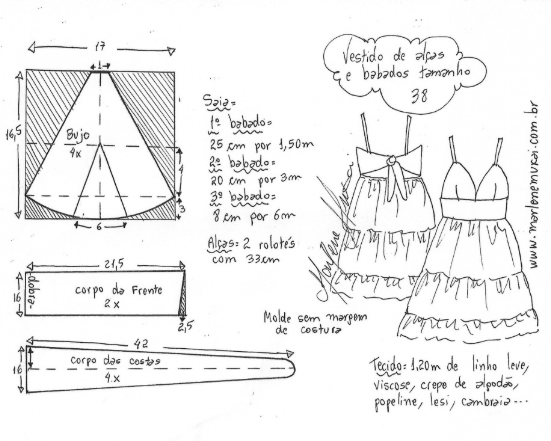 17
1
16,5
Bujo
4x
4
3
6
Saia=
1º babado=
25 cm por 1,50m
2º babado=
20 cm por 3m
3º babado=
8 cm por 6m
Alças= 2 rolotês
com 33cm
Vestido de alças
e babados tamanho
38
www.marlenemukai.com.br
Marlene Mukai
21,5
dobra
16
corpo da Frente
2x
2,5
42
16
corpo das costas
4.x
Molde sem margem
de costura
Tecido= 1,20m de linho leve,
viscose, crepo de algodão,
popeline, lesi, cambraia...